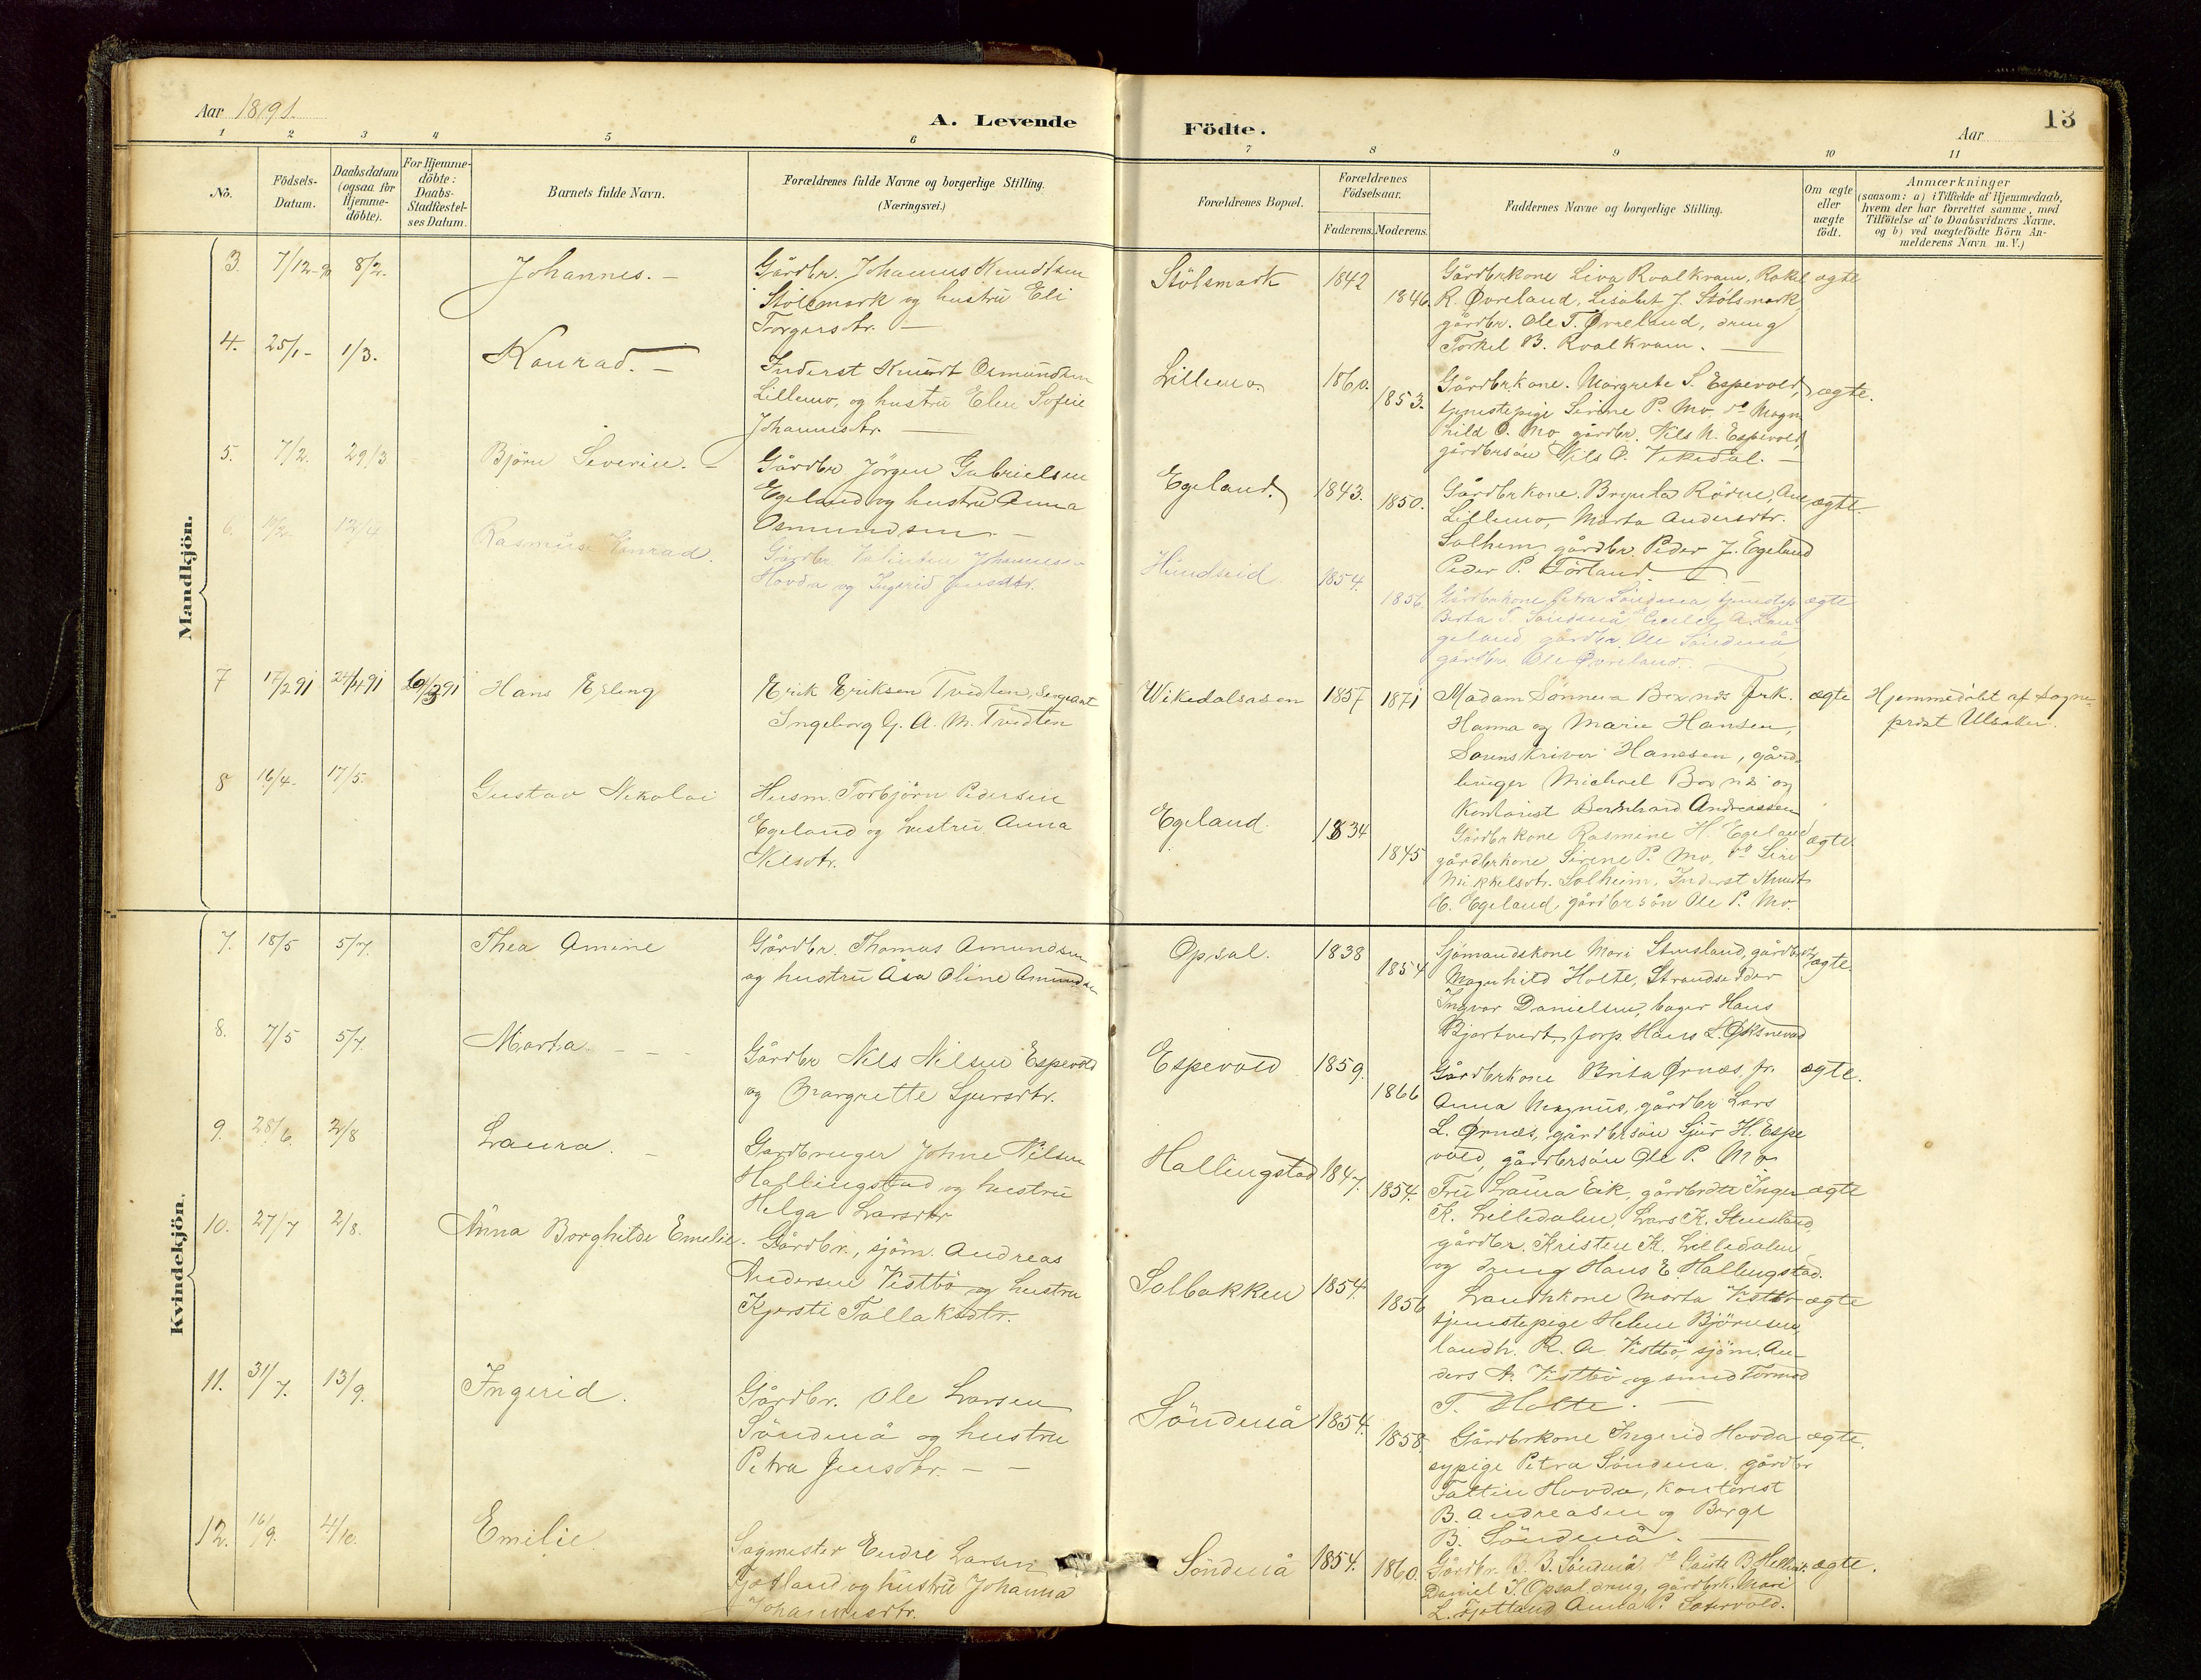 Aar 1891.
A. Levende Födte.
Aar
13
1 2 3 4 5 6 7 8 9 10 11
No.
Födsels-
Datum.
Daabsdatum
(ogsaa for
Hjemme-
döbte).
For Hjemme-
döbte:
Daabs-
Stadfæstel-
ses Datum.
Barnets fulde Navn.
Forældrenes fulde Navne og borgerlige Stilling.
(Næringsvei.)
Forældrenes Bopæl.
Forældrenes
Födselsaar.
Faderens. Moderens.
Faddernes Navne og borgerlige Stilling.
Om ægte
eller
uægte
födt.
Anmærkninger
(saasom: a) i Tilfælde af Hjemmedaab,
hvem der har forrettet samme, med
Tilföielse af to Daabsvidners Navne.
og b) ved uægtefödte Börn An-
melderens Navn m. V.)
Mandkjön.
3. 7/12-90 8/2. Johannes. –
Gårdbr. Johannes Knudtsen
Stölsmark og hustru Eli
Torgersdtr. –
Stölsmark 1842 1846.
Gårdbrkone Liva Roalkvam, Rakel
R. Øvreland, Lisabet J. Stölsmark,
gårdbr. Ole T. Øvreland, dreng
Torkel B. Roalkvam. –
ægte
4. 25/1 – 1/3. Konrad. –
Inderst Knudt Osmundsen
Lillemo, og hustru Elen Sofie
Johannesdtr. –
Lillemo. 1860. 1853.
Gårdbrkone. Margrete S. Espevold,
tjenstepige Sirene P. Mo, do Magn
hild O. Mo, gårdbr. Nils N. Espevold,
gårdbrsön Nils O. Vikedal. –
ægte.
5. 7/2. 29/3 Björn Severin. –
Gårdbr Jörgen Gabrielsen
Egeland og hustru Anna
Osmundsen. –
Egeland. 1843. 1850.
Gårdbrkone. Brynla Rödne, Ane
Lillemo, Marta Andersdtr.
Solheim, gårdbr. Peder J. Egeland
Peder P. Törland. –
ægte.
6. 12/4 Rasmus Konrad.
Gårdbr Johannesen
Hovda og Ingerid Jensdtr.
Hundseid 1854. 1856.
Gårdbrkone Petra Söndenå, tjenstep
Berta T. Söndenå, A. Lan
geland, gårdbr. Ole Söndenå
gårdbr. Ole Øvreland. –
ægte
7 17/2 91 24/4 91 Hans Erling
Erik Eriksen Tvedten, Sergeant
Ingeborg G. A. M. Tvedten
Wikedalsosen 1857 1871
Madam Sönneva Boxnes Frk.
Hanna og Marie Hansen,
Sorenskriver Hansen, gård-
bruger Michael Boxnes og
Kontorist Bernhard Andreassen
ægte
Hjemmedöbt af Sogne-
prest Ulsaker.
8 16/4. 17/5. Gustav Nikolai
Husm. Torbjörn Pedersen
Egeland og hustru Anna
Nilsdtr.
Egeland. 1834 1845
Gårdbrkone Rasmine H. Egeland
gårdbrkone Sirene P. Mo, do Siri
Mikkelsdtr. Solheim, Inderst Knudt
E. Egeland, gårdbrsön Ole P. Mo.
ægte.
Kvindekjön.
7. 18/5 5/7. Thea Amine
Gårdbr. Thomas Amundsen
og hustru Åsa Oline Amundsen
Opsal. 1838 1854
Sjömandskone Mari Stensland, gårdbrdtr
Magnhild Holte, Strandsidder
Ingvar Danielsen, bager Hans
Bjortvedt, forp. Hans L. Øksnevad
ægte.
8. 7/5 5/7. Marta. – –
Gårdbr Nils Nilsen Espevold
og Margrette Sjursdtr.
Espevold 1859. 1866
Gårdbrkone Brita Ørnes, fr.
Anna Magnus, gårdbr Lars
L. Ørnes, gårdbrsön Sjur H. Espe
vold, gårdbrsön Ole P. Mo
ægte.
9. 28/6. 2/8 Laura. –
Gardbruger Johne Nilsen
Hallingstad og hustru
Helga Larsdtr
Hallingstad 1847. 1854.
Fru Laura Eik, gårdbrdtr Inger
K. Lilledalen, Lars K. Stensland,
gårdbr. Kristen K. Lilledalen,
og dreng Hans E. Hallingstad.
ægte
10. 27/7 2/8. Anna Borghilde Emelie.
Gårdbr., sjöm. Andreas
Andersen Vistbö og hustru
Kjersti Tallaksdtr.
Solbakken 1854. 1856
Landhkone Marta Vistbö
tjenstepige Helene Björnsen,
landh. R. A. Vistbö, sjöm. An-
ders A. Vistbö og smed Tormod
T. Holte. –
ægte
11. 31/7. 13/9. Ingerid.
Gårdbr. Ole Larsen
Söndenå og hustru
Petra Jensdtr. – –
Söndenå 1854. 1858.
Gårdbrkone Ingerid Hovda
sypige Petra Söndenå, gårdbr
Faltin Hovda, Kontorist
B. Andreasen og Berge
B. Söndenå. –
ægte.
12. 16/9. 4/10. Emelie.
Sagmester Endre Larsen
Fjotland og hustru Johanna
Johannesdtr.
Söndenå 1854. 1860.
Gårdbr. B. B. Söndenå, do Gauste B.
Daniel T. Opsal dreng, gårdbrk. Mari
L. Fjotland, Anna P. Sætervold.
ægte.